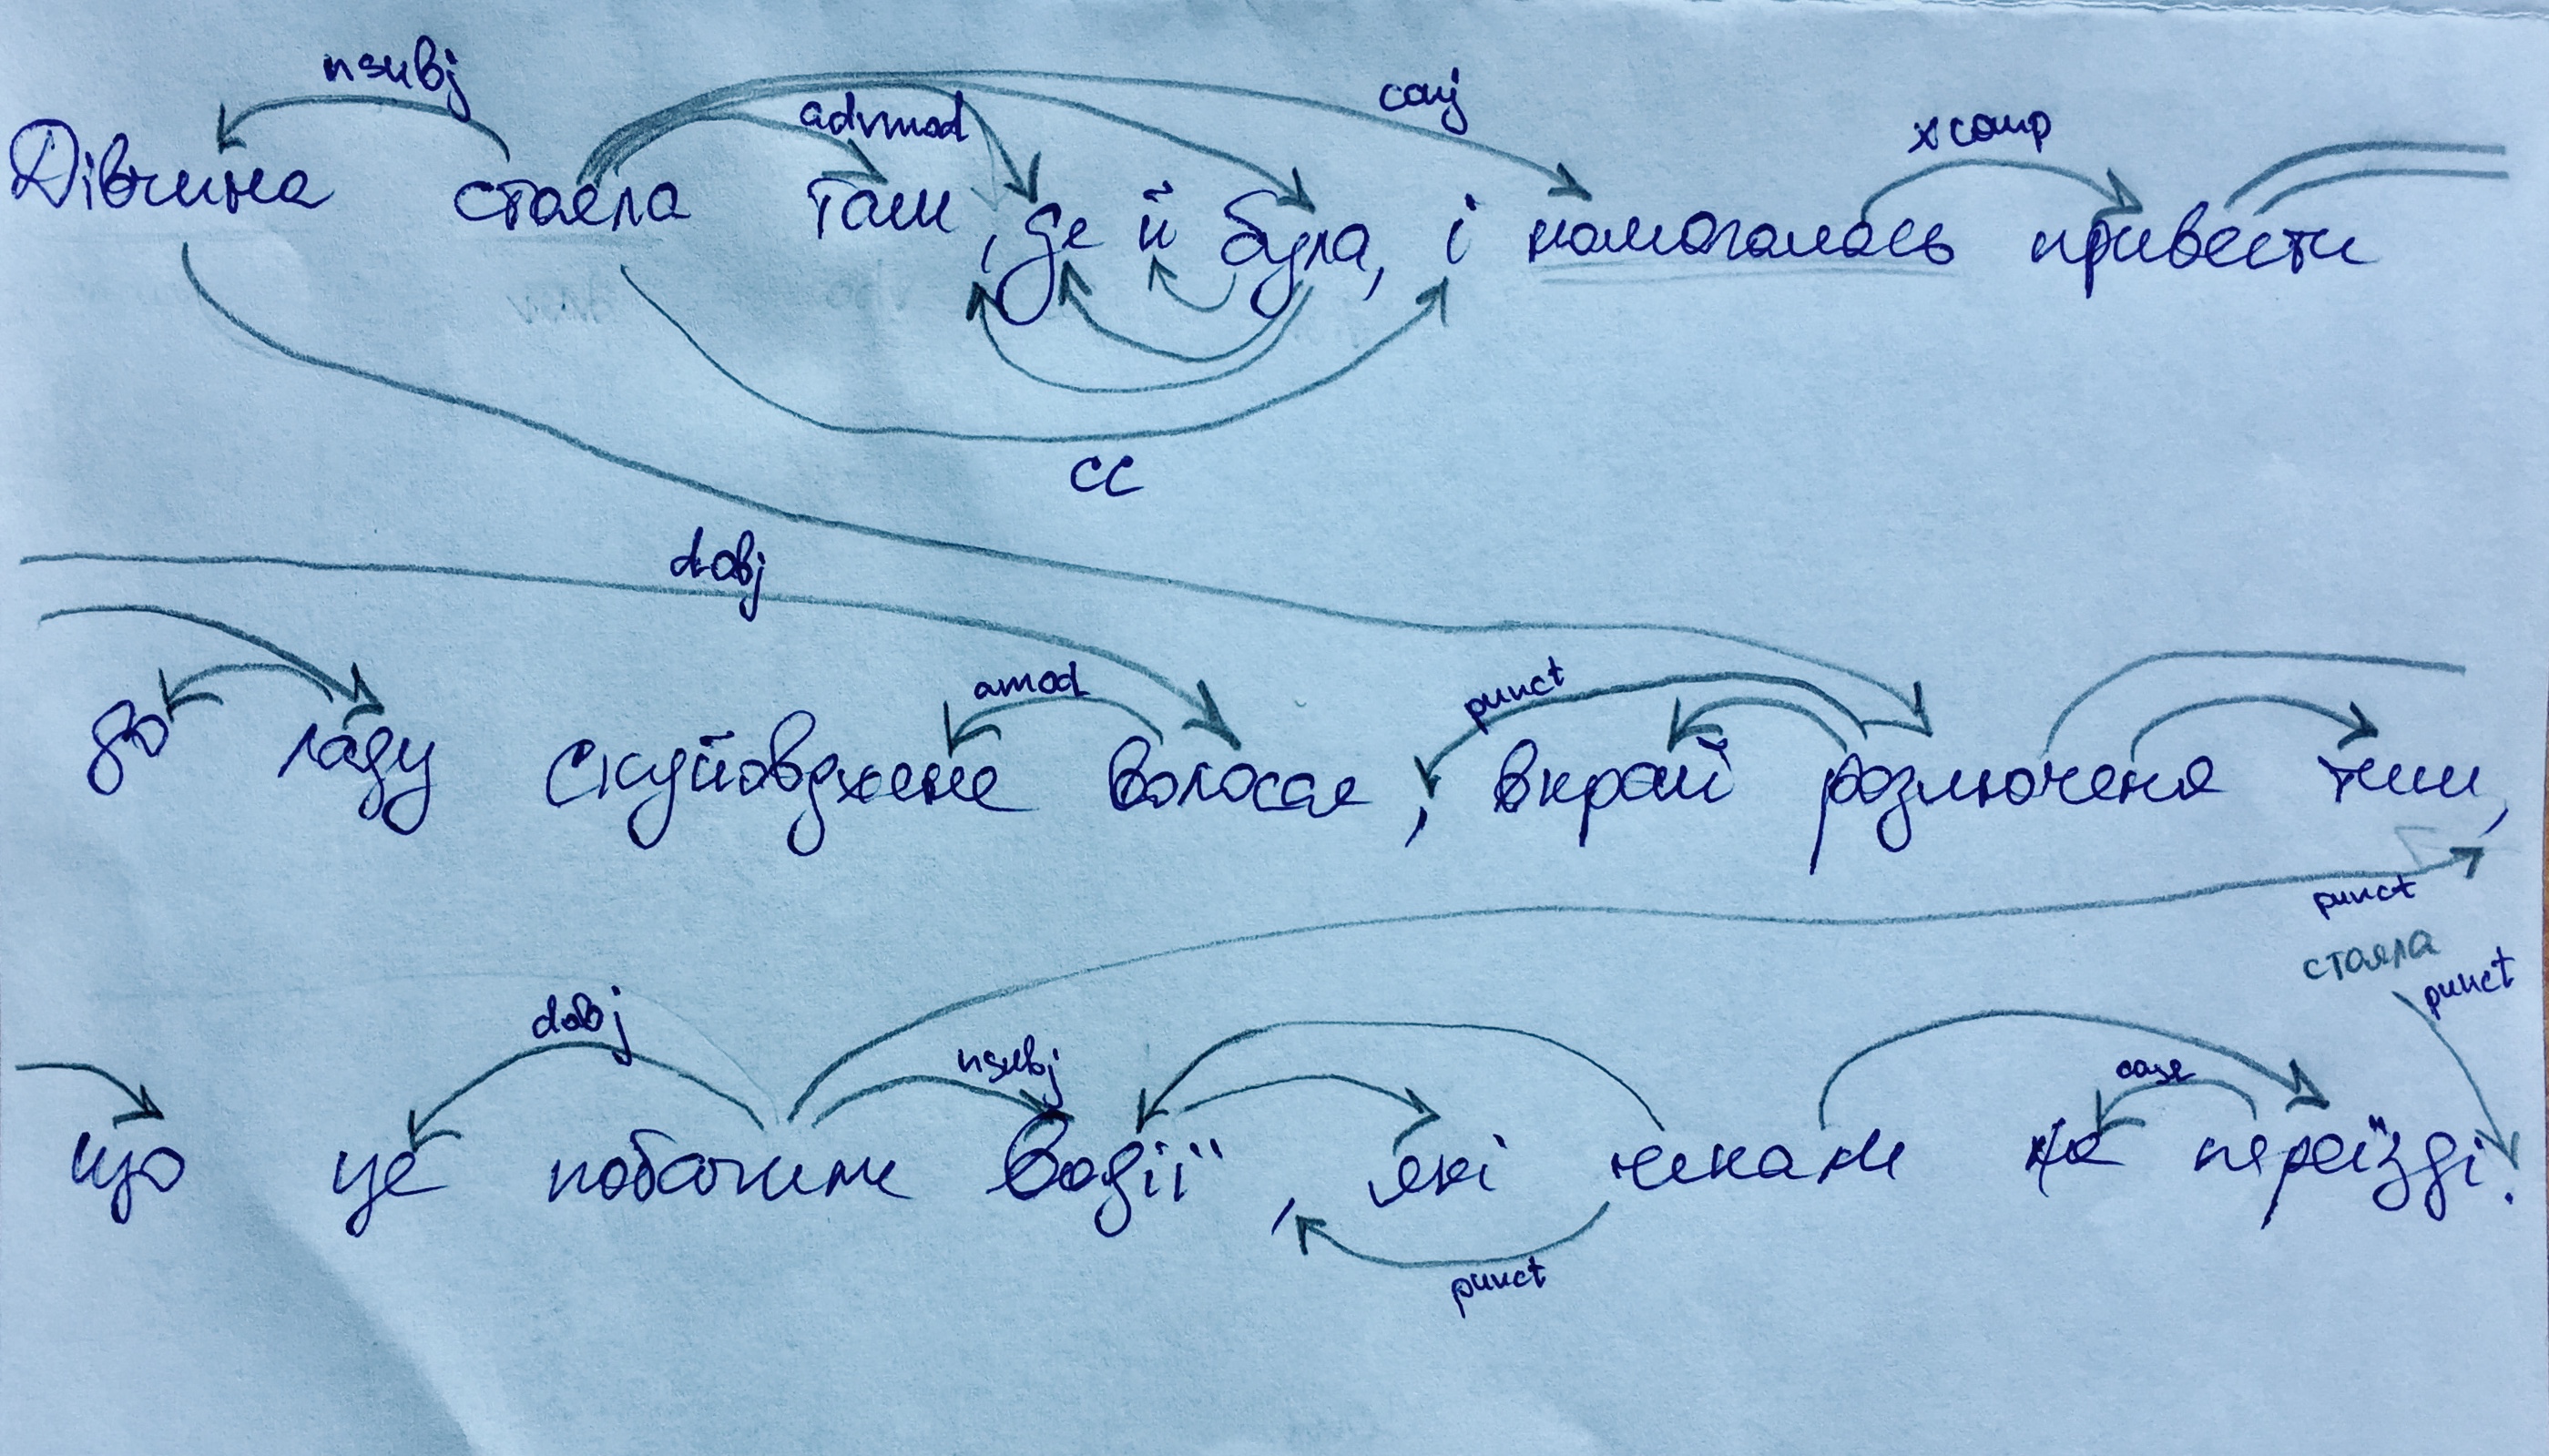 nsubj advmod conj xcomp
Дівчина стояла там, де й була, і намагалась привести
cc
dobj
amod punct
до ладу скуйовджене волосся, вкрай розлючена тим,
punct
стояла
punct
dobj nsubj case
що це побачили водії, які чекали на переїзді.
punct